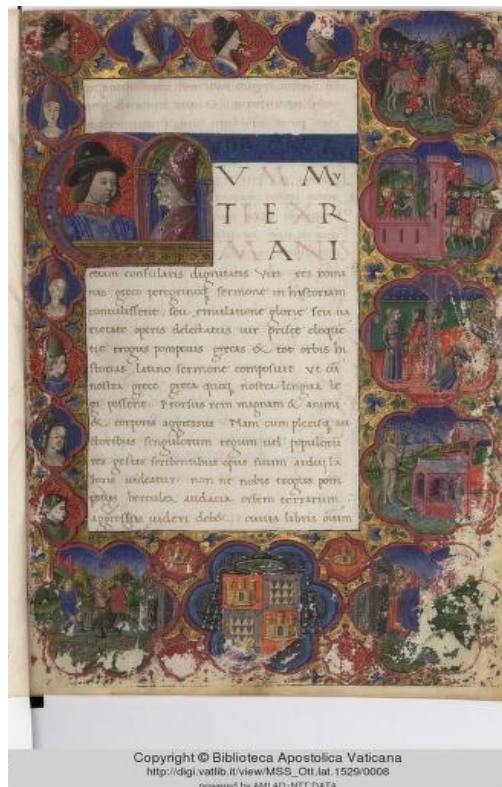 V M Mv
T E R
M A N I
etiam consularis dignitatis viri res roma
nas greco peregrinoq sermone in historiam
contulissent, seu emulatione glorie seu ua
rietate operis delectatus uir prisce eloque
tie trogus pompeius grecas & tot orbis hi
storias latino sermone composuit. Vt cu
nostra grece greca quoq nostra lengua le
gi possent. Prorsus rem magnam & animi
& corporis aggressus. Nam cum plerisq au
ctoribus singulorum regum uel populoru
res gestas scribentibus opus suum ardui la
boris uideatur. non ne nobis trogus pom
peius hercules audacia orbem terrarum
aggressus uideri debet. cuius libris oium
Copyright © Biblioteca Apostolica Vaticana
http://digi.vatlib.it/view/MSS_Ott.lat.1529/0008
powered by AMLAD-NTT DATA